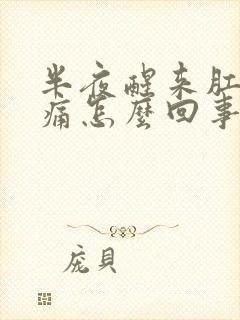 半夜醒来肛
痛怎麼回事
庞貝